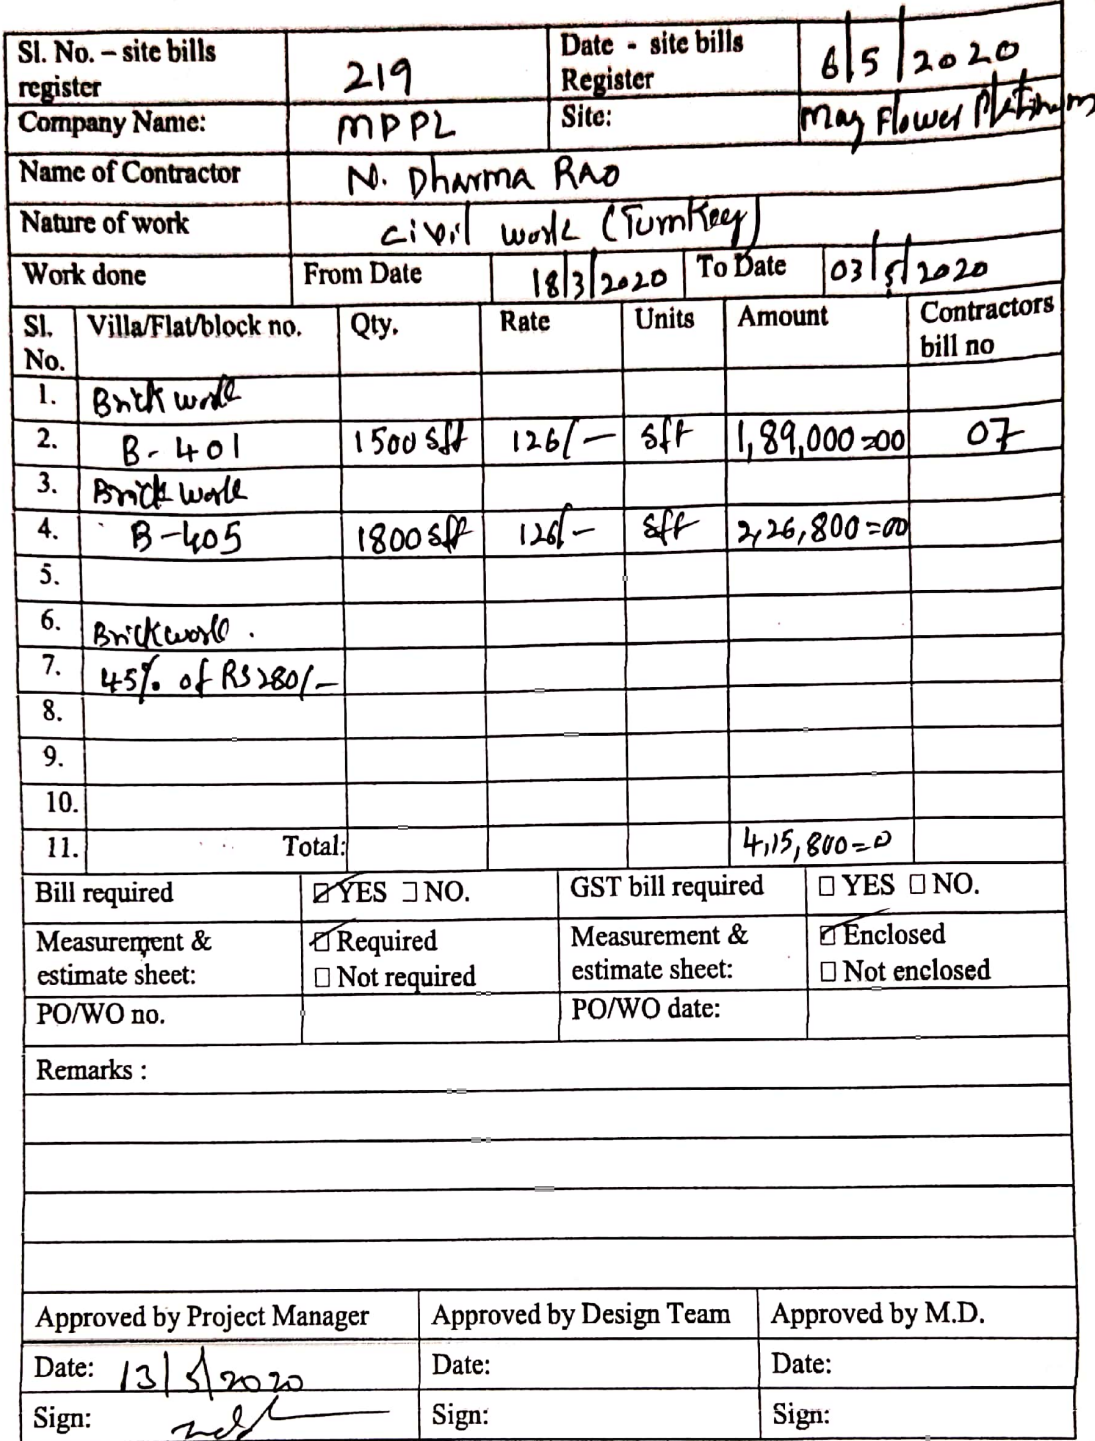 Sl. No. – site bills register 219 Date - site bills Register 6/5/2020
Company Name: MPPL Site: May Flower Platinum
Name of Contractor N. Dharma RAO
Nature of work civil work (Turnkey)
Work done From Date 18/3/2020 To Date 03/5/2020
Sl. No. Villa/Flat/block no. Qty. Rate Units Amount Contractors bill no
1. Brick work
2. B-401 1500 sft 126/- sft 1,89,000=00 07
3. Brick work
4. B-405 1800 sft 126/- sft 2,26,800=00
5.
6. Brickwork.
7. 45% of RS 280/-
8.
9.
10.
11. Total: 4,15,800=0
Bill required ☑ YES ☐ NO. GST bill required ☐ YES ☐ NO.
Measurement & estimate sheet: ☑ Required ☐ Not required Measurement & estimate sheet: ☑ Enclosed ☐ Not enclosed
PO/WO no. PO/WO date:
Remarks :
Approved by Project Manager Approved by Design Team Approved by M.D.
Date: 13/5/2020 Date: Date:
Sign: Sign: Sign: